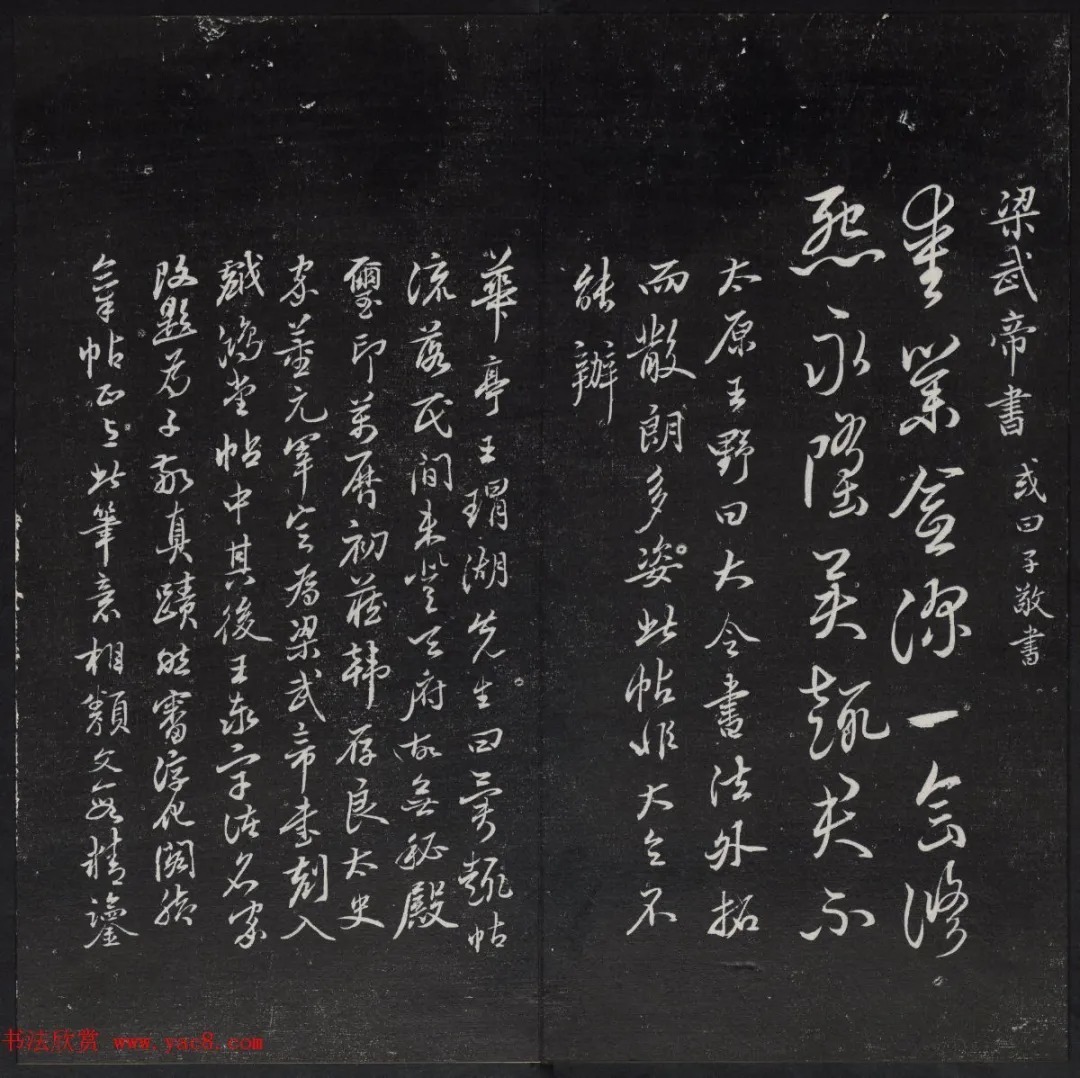 梁武帝書 或曰子敬書
愛業愈深一念脩
怨永墮異趣君不
太原王野曰大令書法外拓
而散朗多姿此帖非大令不
能辦
華亭王瑁湖先生曰異趣帖
流落民間未登天府故無秘殿
璽印萬曆初藏韓存良太史
家董元宰定為梁武帝書刻入
戲鴻堂帖中其後王泰宇諸名家
改題為子敬真蹟然審淳化閣
帖正與此筆意相類文敏精鑒
书法欣赏 www.yac8.com